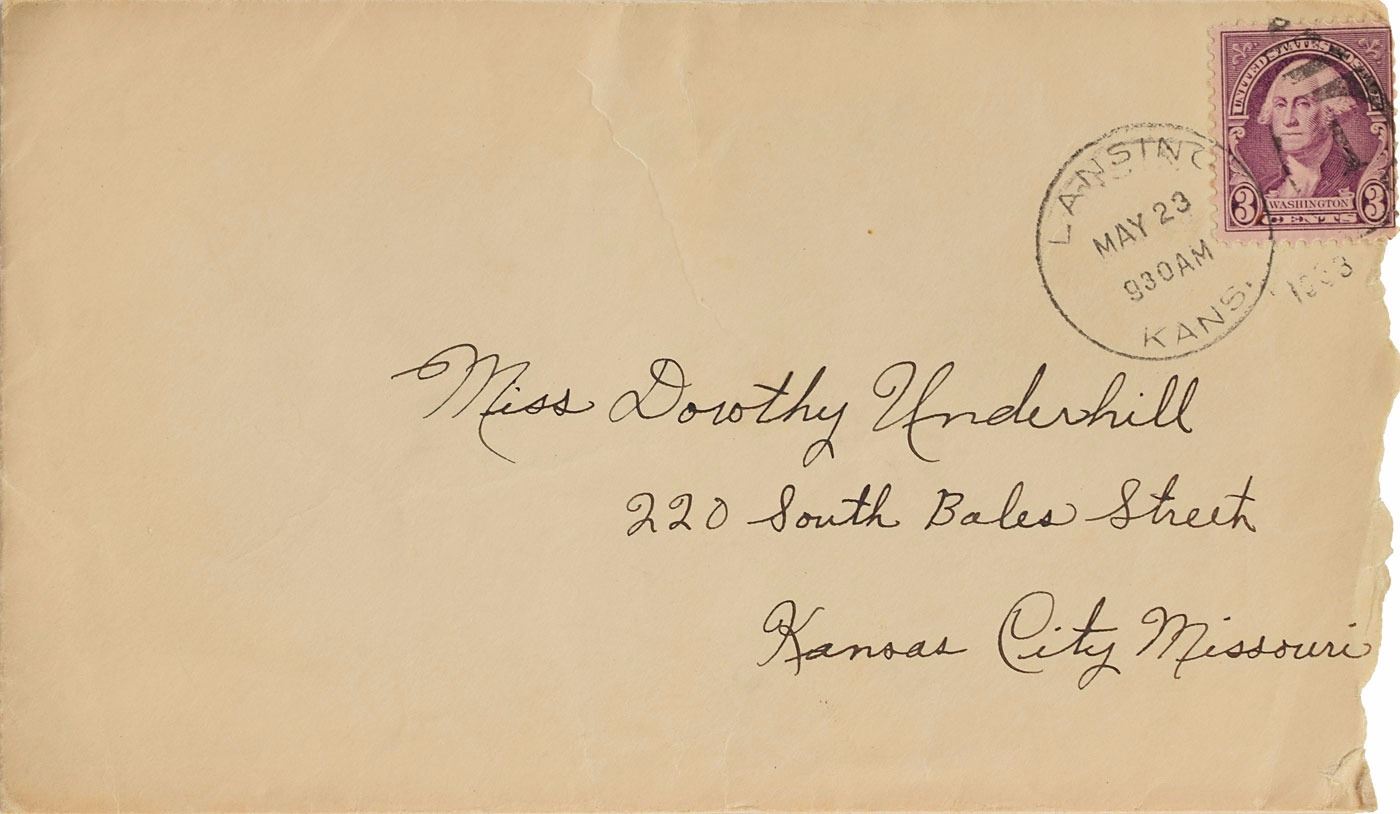 UNITED STATES POSTAGE
3 WASHINGTON 3
CENTS
LANSING
MAY 23
930AM
KANS.
1933
Miss Dorothy Underhill
220 South Bales Street
Kansas City Missouri